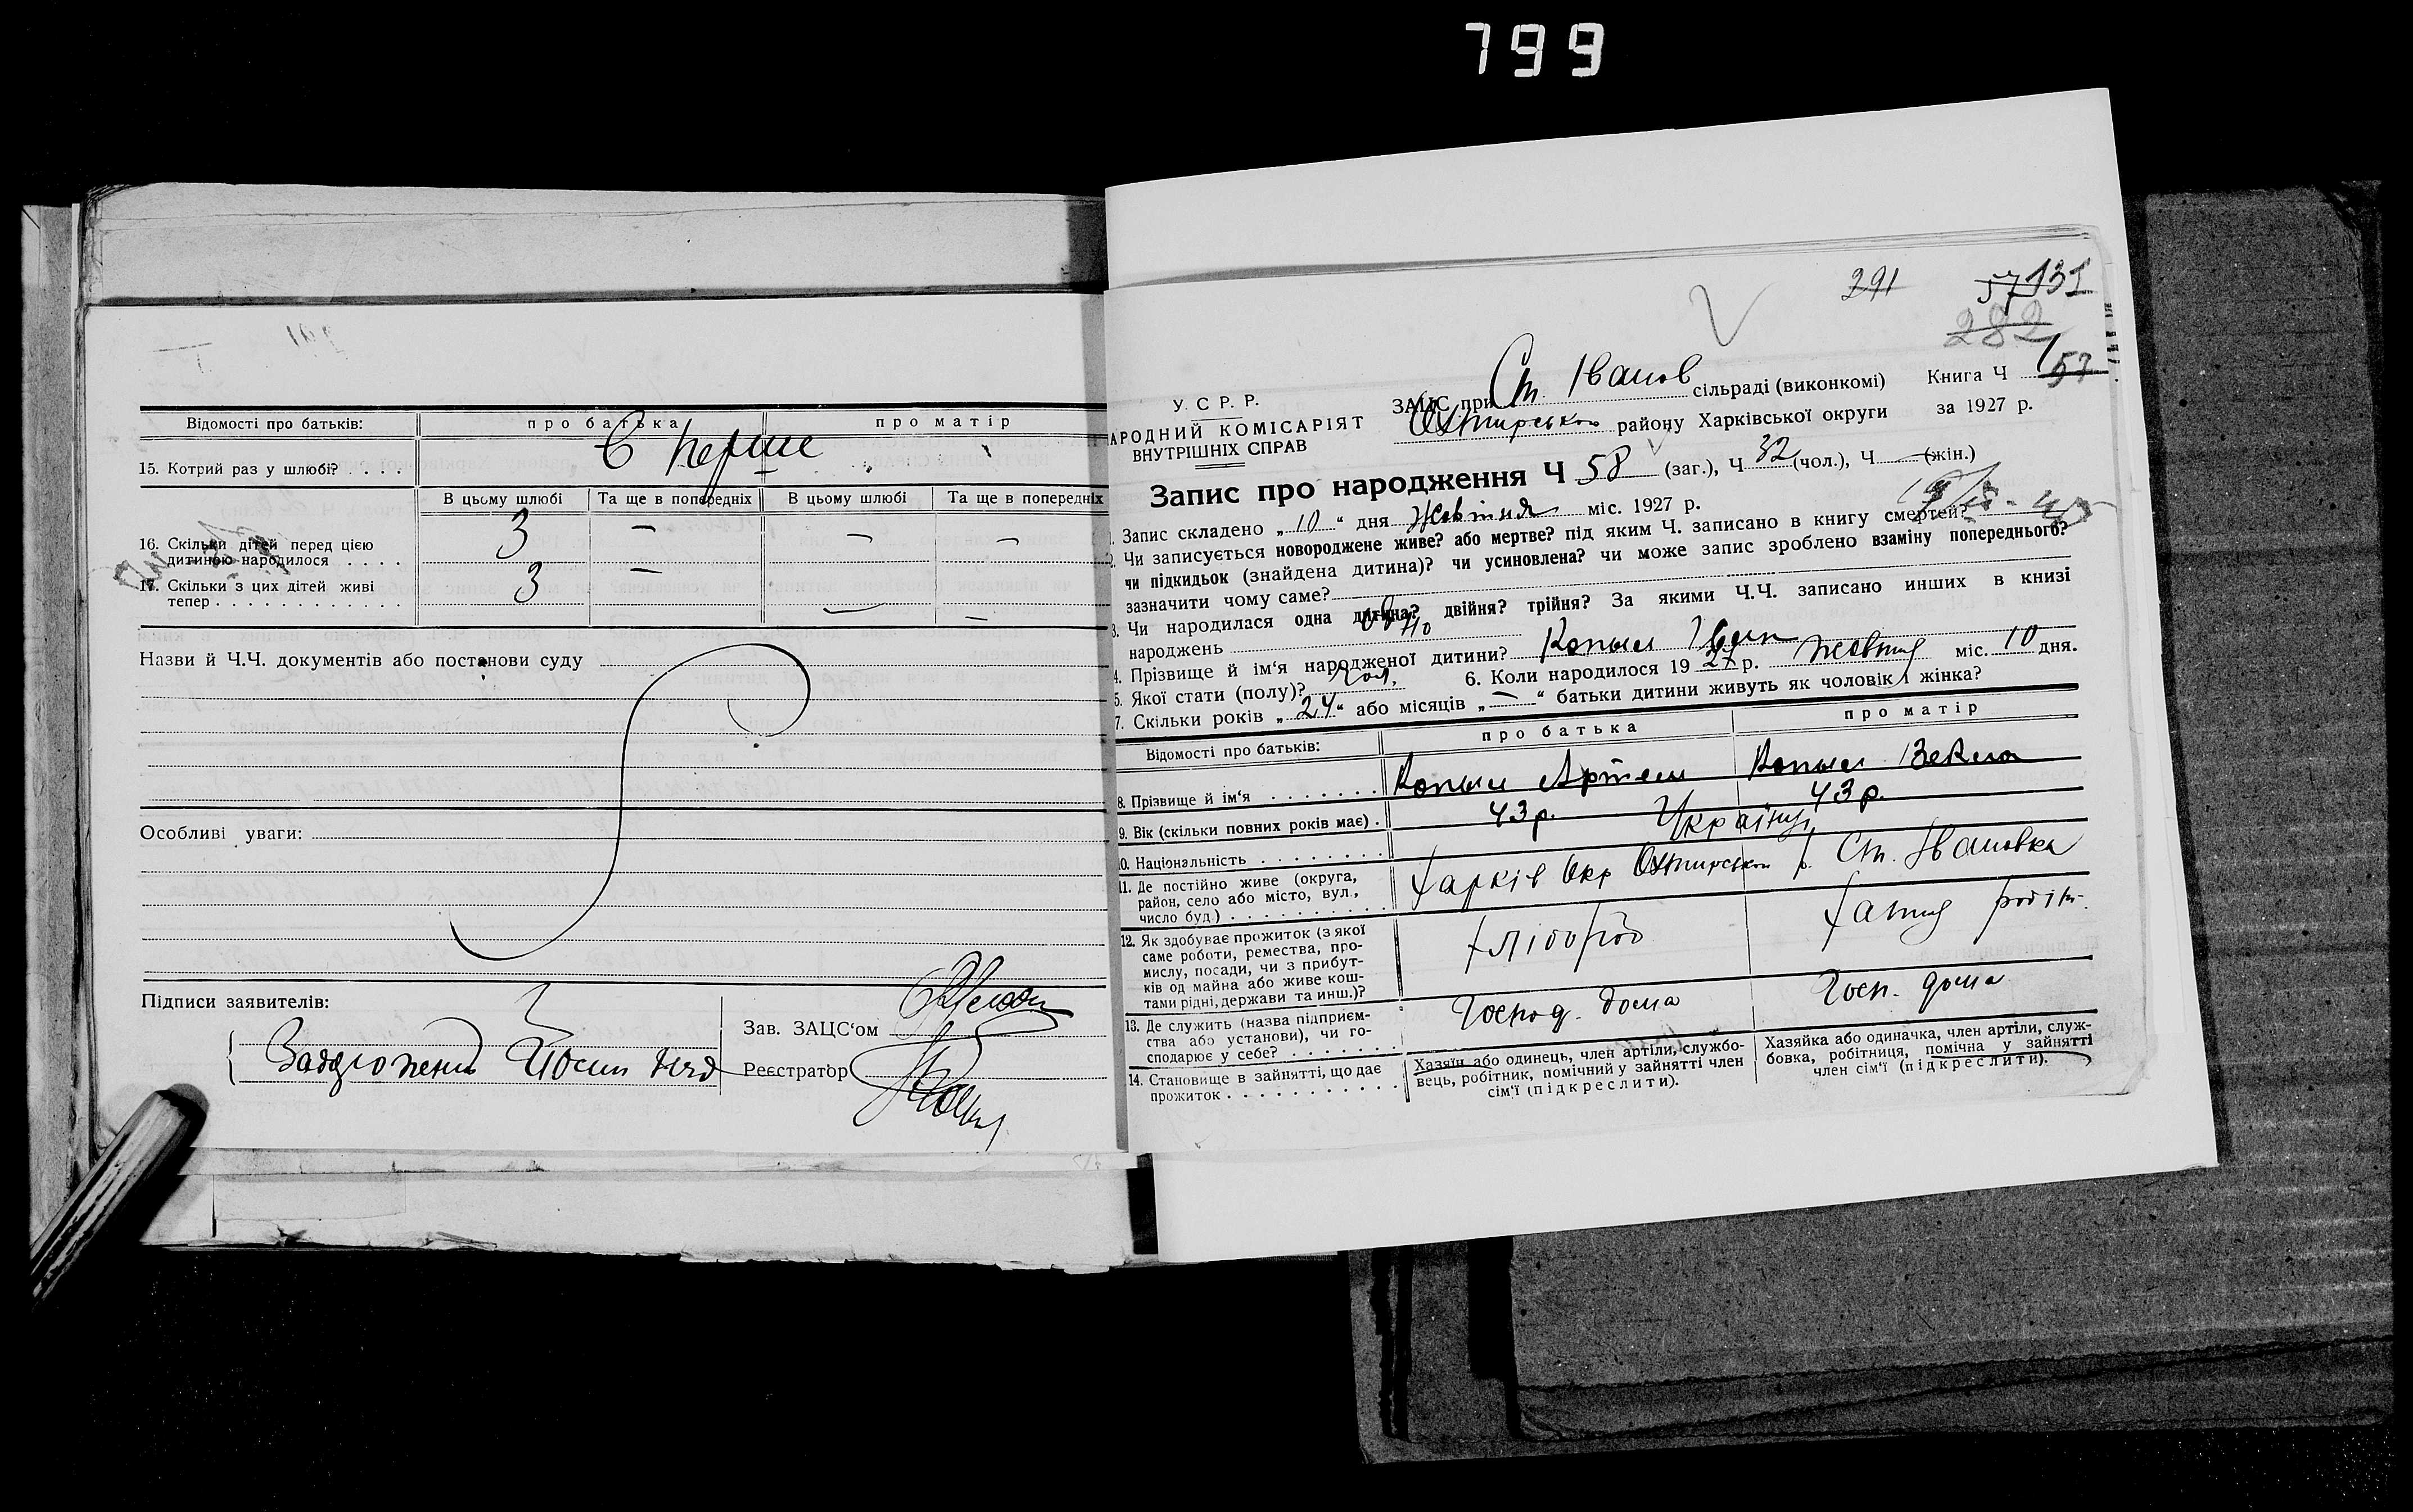 799
Відомості про батьків: про батька про матір
15. Котрий раз у шлюбі? . . . . в перше
В цьому шлюбі Та ще в попередніх В цьому шлюбі Та ще в попередніх
16. Скільки дітей перед цією
дитиною народилося . . . . 3 — — —
17. Скільки з цих дітей живі
тепер . . . . . . . . . . . . 3 — — —
Назви й Ч.Ч. документів або постанови суду
Особливі уваги:
Підписи заявителів:
Зав. ЗАЦС‘ом
Реєстратор
291 57 131
282
У. С. Р. Р.
АРОДНИЙ КОМІСАРІЯТ
ВНУТРІШНІХ СПРАВ
ЗАЦС при Ст. Іванов сільраді (виконкомі) Книга Ч 57
Охтирськом району Харківської округи за 1927 р.
Запис про народження Ч 58 (заг.), Ч 32 (чол.), Ч — (жін.)
1. Запис складено „ 10 “ дня Жовтня міс. 1927 р.
2. Чи записується новороджене живе? або мертве? під яким Ч. записано в книгу смертей?
чи підкидьок (знайдена дитина)? чи усиновлена? чи може запис зроблено взаміну попереднього?
зазначити чому саме?
3. Чи народилася одна дитина? двійня? трійня? За якими Ч.Ч. записано инших в книзі
народжень одно
4. Прізвище й ім‘я народженої дитини? Копил Іван
5. Якої стати (полу)? Чол. 6. Коли народилося 19 27 р. жовтня міс. 10 дня.
7. Скільки років „ 24 “ або місяців „ — “ батьки дитини живуть як чоловік і жінка?
Відомості про батьків: про батька про матір
8. Прізвище й ім‘я . . . . . . . Копил Артем Копил Векла
9. Вік (скільки повних років має) . 43 р. 43 р.
10. Національність . . . . . . . . Українці
11. Де постійно живе (округа,
район, село або місто, вул.,
число буд.) . . . . . . . . . . Харків Окр Охтирськом р. Ст. Івановка
12. Як здобуває прожиток (з якої
саме роботи, ремества, про-
мислу, посади, чи з прибут-
ків од майна або живе кош-
тами рідні, держави та инш.)? Хлібороб Хатня робіт.
13. Де служить (назва підприєм-
ства або установи), чи го-
сподарює у себе? . . . . . . . Господ. дома Госп. дома
14. Становище в зайнятті, що дає
прожиток . . . . . . . . . . .
Хазяїн або одинець, член артіли, службо-
вець, робітник, помічний у зайнятті член
сім‘ї (підкреслити).
Хазяйка або одиначка, член артіли, служ-
бовка, робітниця, помічна у зайнятті
член сім‘ї (підкреслити).